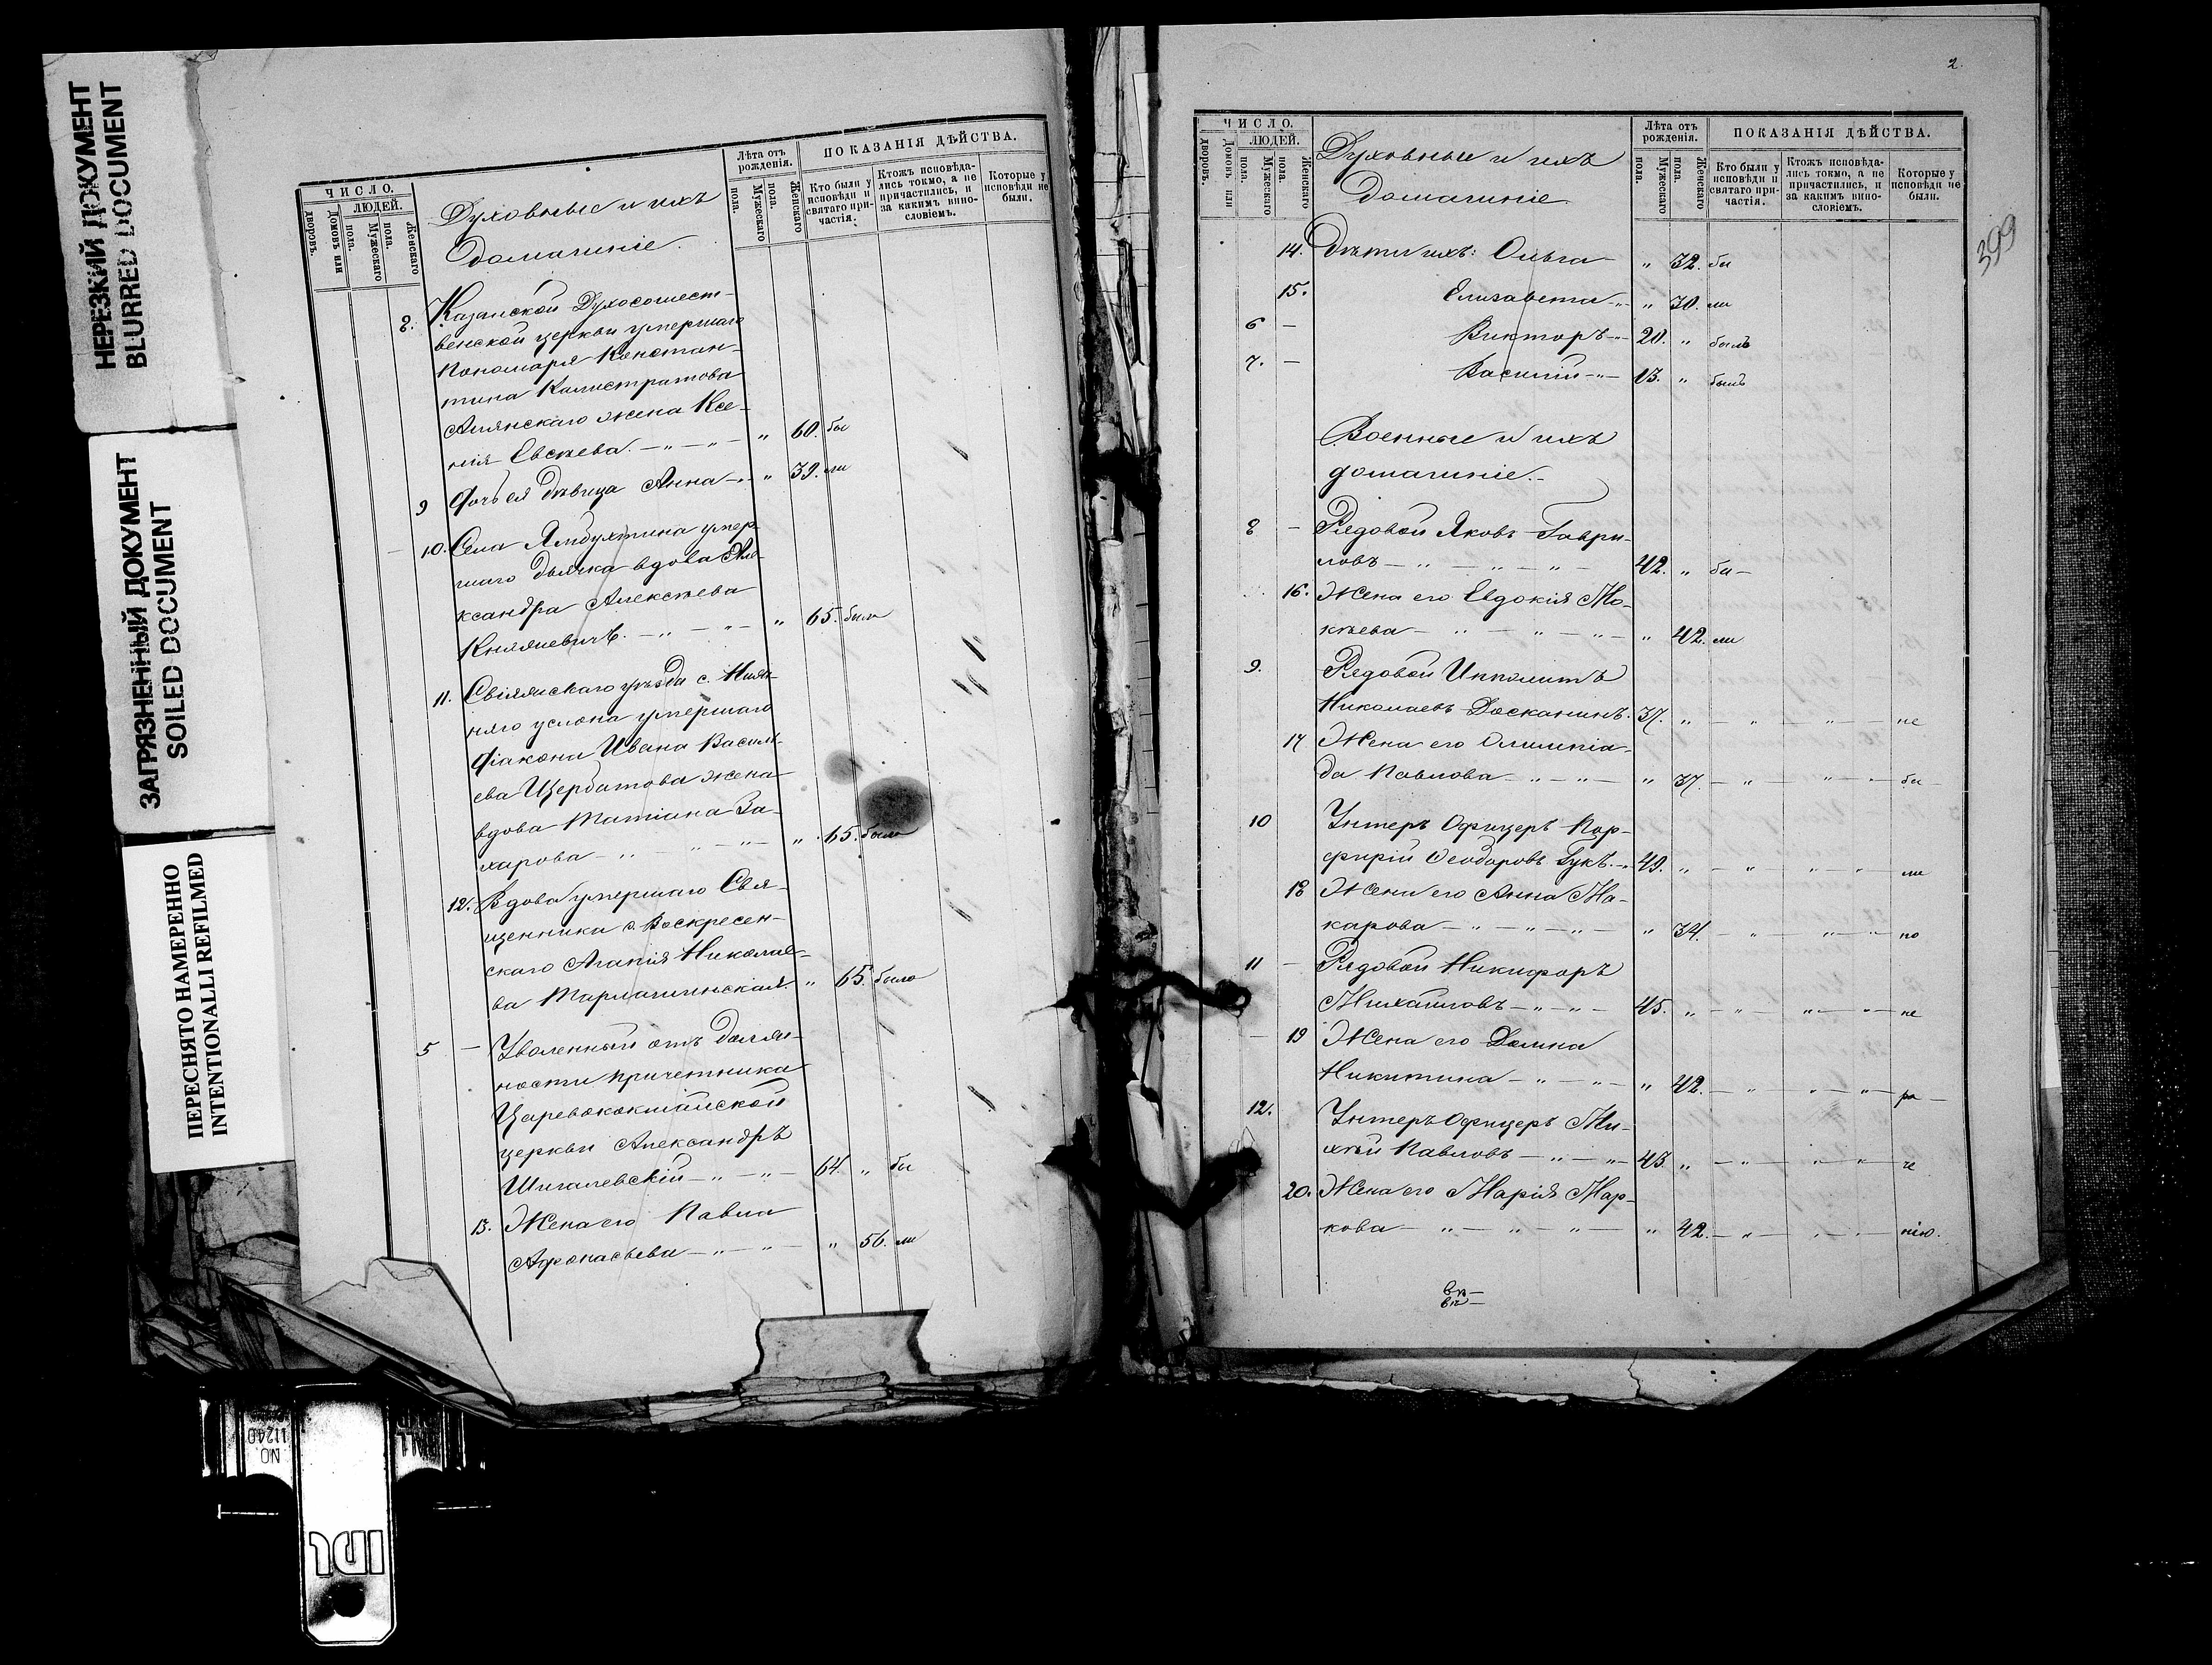 НЕРЕЗКИЙ ДОКУМЕНТ
BLURRED DOCUMENT
ЗАГРЯЗНЕННЫЙ ДОКУМЕНТ
SOILED DOCUMENT
ПЕРЕСНЯТО НАМЕРЕННО
INTENTIONALLI REFILMED
ЧИСЛО.
ЛЮДЕЙ.
Домовъ или дворовъ.
Мужескаго пола.
Женскаго пола.
Духовные и ихъ
домашніе.
Лѣта отъ рожденія.
Мужескаго пола.
Женскаго пола.
ПОКАЗАНІЯ ДѢЙСТВА.
Кто были у исповѣди и святаго причастія.
Ктожъ исповѣда-лись токмо, а не причастились, и за какимъ вино-словіемъ.
Которые у исповѣди не были.
8. Казанской Духосошест-
венской церкви умершаго
пономаря Констан-
тина Калистратова
жена Ксе-
нія Евсѣева. — „ — „ — „ 60. бы
9 Дочь ея дѣвица Анна — „ 39. ли
10. Села Ямбухтина умер-
шаго дьячка вдова Але-
ксандра Алексѣева
Княжевичъ. — „ — „ — „ 65. была
11. Свіяжскаго уѣзда с. Ниж-
няго услона умершаго
діакона Ивана Василь-
ева Щербатова жена
вдова Татіана За-
харова — „ — „ — „ — „ 65. была
12. Вдова умершаго Свя-
щенника с. Воскресен-
скаго Агапія Николае-
ва „ 65. была
5 — Уволенный отъ долж-
ности причетника
Царевококшайской
церкви Александръ
Шигалевскій — „ — „ — 64. „ бы
13. Жена его Павла
Афонасьева — „ — „ — „ 56. ли
2.
399
ЧИСЛО.
ЛЮДЕЙ.
Домовъ или дворовъ.
Мужескаго пола.
Женскаго пола.
Духовные и ихъ
домашніе.
Лѣта отъ рожденія.
Мужескаго пола.
Женскаго пола.
ПОКАЗАНІЯ ДѢЙСТВА.
Кто были у исповѣди и святаго причастія.
Ктожъ исповѣда-лись токмо, а не причастились, и за какимъ вино-словіемъ.
Которые у исповѣди не были.
14. Дѣти ихъ: Ольга — „ 32. бы
15. Елизавета — „ — „ 30. ли
6 — Викторъ — „ — 20. „ былъ
7. — Василій — „ — 13. „ былъ
Военные и ихъ
домашніе. —
8 — Рядовой Яковъ Гаври-
ловъ — „ — „ — „ — 42. „ бы —
16. Жена его Евдокія Мо-
кѣева — „ — „ — „ — „ 42. ли
9. Рядовой Ипполитъ
Николаевъ Досканинъ. 37. „ — „ — „ — не
17 Жена его Олимпіа-
да Павлова — „ — „ — „ 37. — „ „ „ бы
10 Унтеръ Офицеръ Пор-
фирій Ѳеодоровъ Гукъ. — „ 49. „ — „ — „ — „ ли
18 Жена его Анна Ма-
карова — „ — „ — „ — „ 34. — „ „ „ по
11 — Рядовой Никифоръ
Михайловъ — „ — „ — 45. „ — „ — „ — „ — не
— 19 Жена его Домна
Никитина — „ — „ — „ 42. — „ — „ — „ — ра —
12. Унтеръ Офицеръ Ми-
хѣй Павловъ — „ — „ — 43. „ — „ — „ — „ — че
20. Жена его Марія Мар-
кова — „ — „ — „ — „ 42. — „ — „ — „ — нію.
NO
11240
IDL